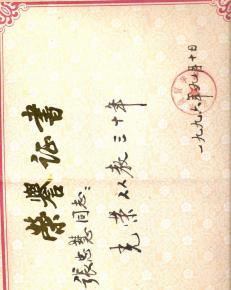 荣誉证书
张忠慧同志：
光荣从教三十年
一九九六年九月十日